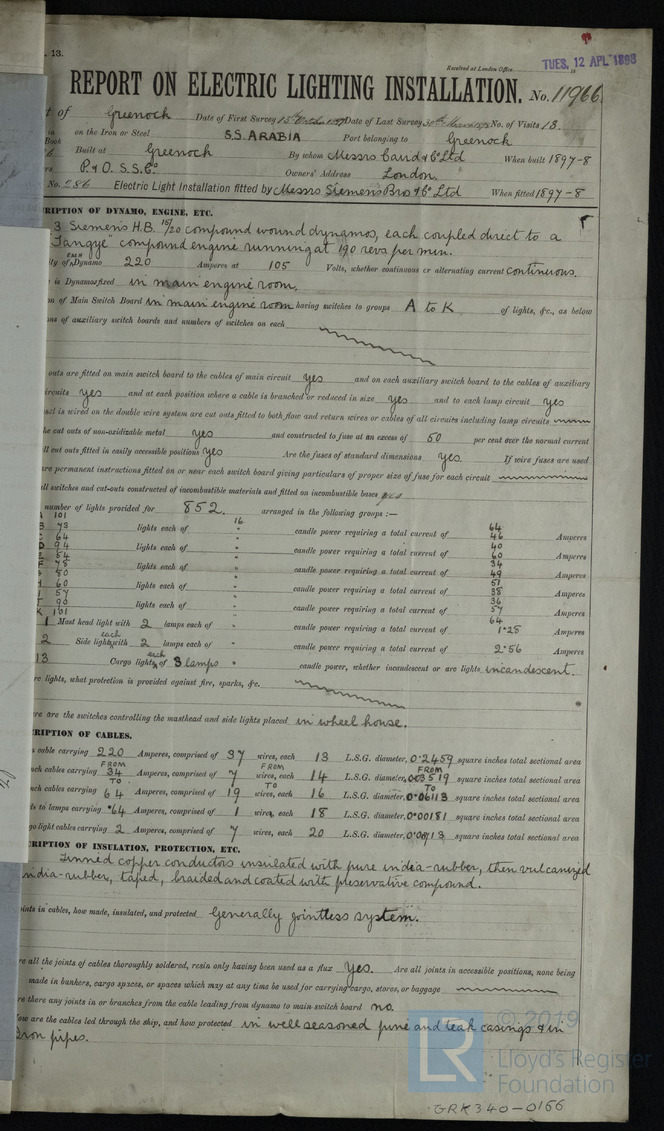 . 13.
Received at London Office
TUES. 12 APL 1898
REPORT ON ELECTRIC LIGHTING INSTALLATION. No. 11966.
t of Greenock Date of First Survey Date of Last Survey No. of Visits 13.
on the Iron or Steel S.S. ARABIA Port belonging to Greenock
Built at Greenock By whom Messrs Caird & Co Ltd When built 1897-8
P. & O. S. S. Co. Owners' Address London.
No. 286 Electric Light Installation fitted by Messrs Siemens Bros & Co Ltd When fitted 1897-8
RIPTION OF DYNAMO, ENGINE, ETC.
3 Siemens H.B. 15/20 compound wound dynamos, each coupled direct to a
"Tangye" compound engine running at 190 revs per min.
ty of EACH Dynamo 220 Amperes at 105 Volts, whether continuous or alternating current continuous.
is Dynamos fixed in main engine room.
on of Main Switch Board in main engine room having switches to groups A to K of lights, &c., as below
ns of auxiliary switch boards and numbers of switches on each
outs are fitted on main switch board to the cables of main circuit yes and on each auxiliary switch board to the cables of auxiliary
ircuits yes and at each position where a cable is branched or reduced in size yes and to each lamp circuit yes
ssel is wired on the double wire system are cut outs fitted to both flow and return wires or cables of all circuits including lamp circuits
he cut outs of non-oxidizable metal yes and constructed to fuse at an excess of 50 per cent over the normal current
ll cut outs fitted in easily accessible positions yes Are the fuses of standard dimensions yes. If wire fuses are used
re permanent instructions fitted on or near each switch board giving particulars of proper size of fuse for each circuit
ll switches and cut-outs constructed of incombustible materials and fitted on incombustible bases yes
number of lights provided for 852. arranged in the following groups :—
A 101 16 64
B 73 lights each of " candle power requiring a total current of 46 Amperes
C 64 " 40
D 94 lights each of " candle power requiring a total current of 60 Amperes
E 54 " 34
F 78 lights each of " candle power requiring a total current of 49 Amperes
50 " 51
H 60 lights each of " candle power requiring a total current of 38 Amperes
I 57 " 36
90 lights each of " candle power requiring a total current of 57 Amperes
K 101 " 64
1 Mast head light with 2 lamps each of " candle power requiring a total current of 1.25 Amperes
2 Side lights each with 2 lamps each of " candle power requiring a total current of 2.56 Amperes
13 Cargo lights each of 8 lamps " candle power, whether incandescent or arc lights incandescent.
rc lights, what protection is provided against fire, sparks, &c.
ere are the switches controlling the masthead and side lights placed in wheel house.
RIPTION OF CABLES.
cable carrying 220 Amperes, comprised of 37 wires, each 13 L.S.G. diameter, 0.2459 square inches total sectional area
FROM FROM FROM
nch cables carrying 34 Amperes, comprised of 7 wires, each 14 L.S.G. diameter, square inches total sectional area
TO TO TO
nch cables carrying 64 Amperes, comprised of 19 wires, each 16 L.S.G. diameter, 0.06113 square inches total sectional area
ds to lamps carrying .64 Amperes, comprised of 1 wires, each 18 L.S.G. diameter, 0.00181 square inches total sectional area
go light cables carrying 2 Amperes, comprised of 7 wires, each 20 L.S.G. diameter, square inches total sectional area
RIPTION OF INSULATION, PROTECTION, ETC.
Tinned copper conductors insulated with pure india-rubber, then vulcanized
ndia-rubber, taped, braided and coated with preservative compound.
ints in cables, how made, insulated, and protected Generally jointless system.
re all the joints of cables thoroughly soldered, resin only having been used as a flux yes. Are all joints in accessible positions, none being
made in bunkers, cargo spaces, or spaces which may at any time be used for carrying cargo, stores, or baggage
re there any joints in or branches from the cable leading from dynamo to main switch board no.
How are the cables led through the ship, and how protected in well seasoned pine and teak casings & in
Iron pipes.
© 2019
LR
Lloyd's Register
Foundation
GRK340-0166